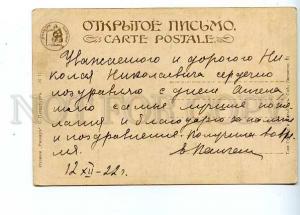 ОТКРЫТОЕ ПИСЬМО.
CARTE POSTALE.
Уважаемого и дорогого Ни-
колая Николаевича сердечно
поздравляю с днем Ангела
шлю самые лучшие поже-
лания и благодарю за память
и поздравления. Получила во вре-
мя.
12 XII - 22 г.